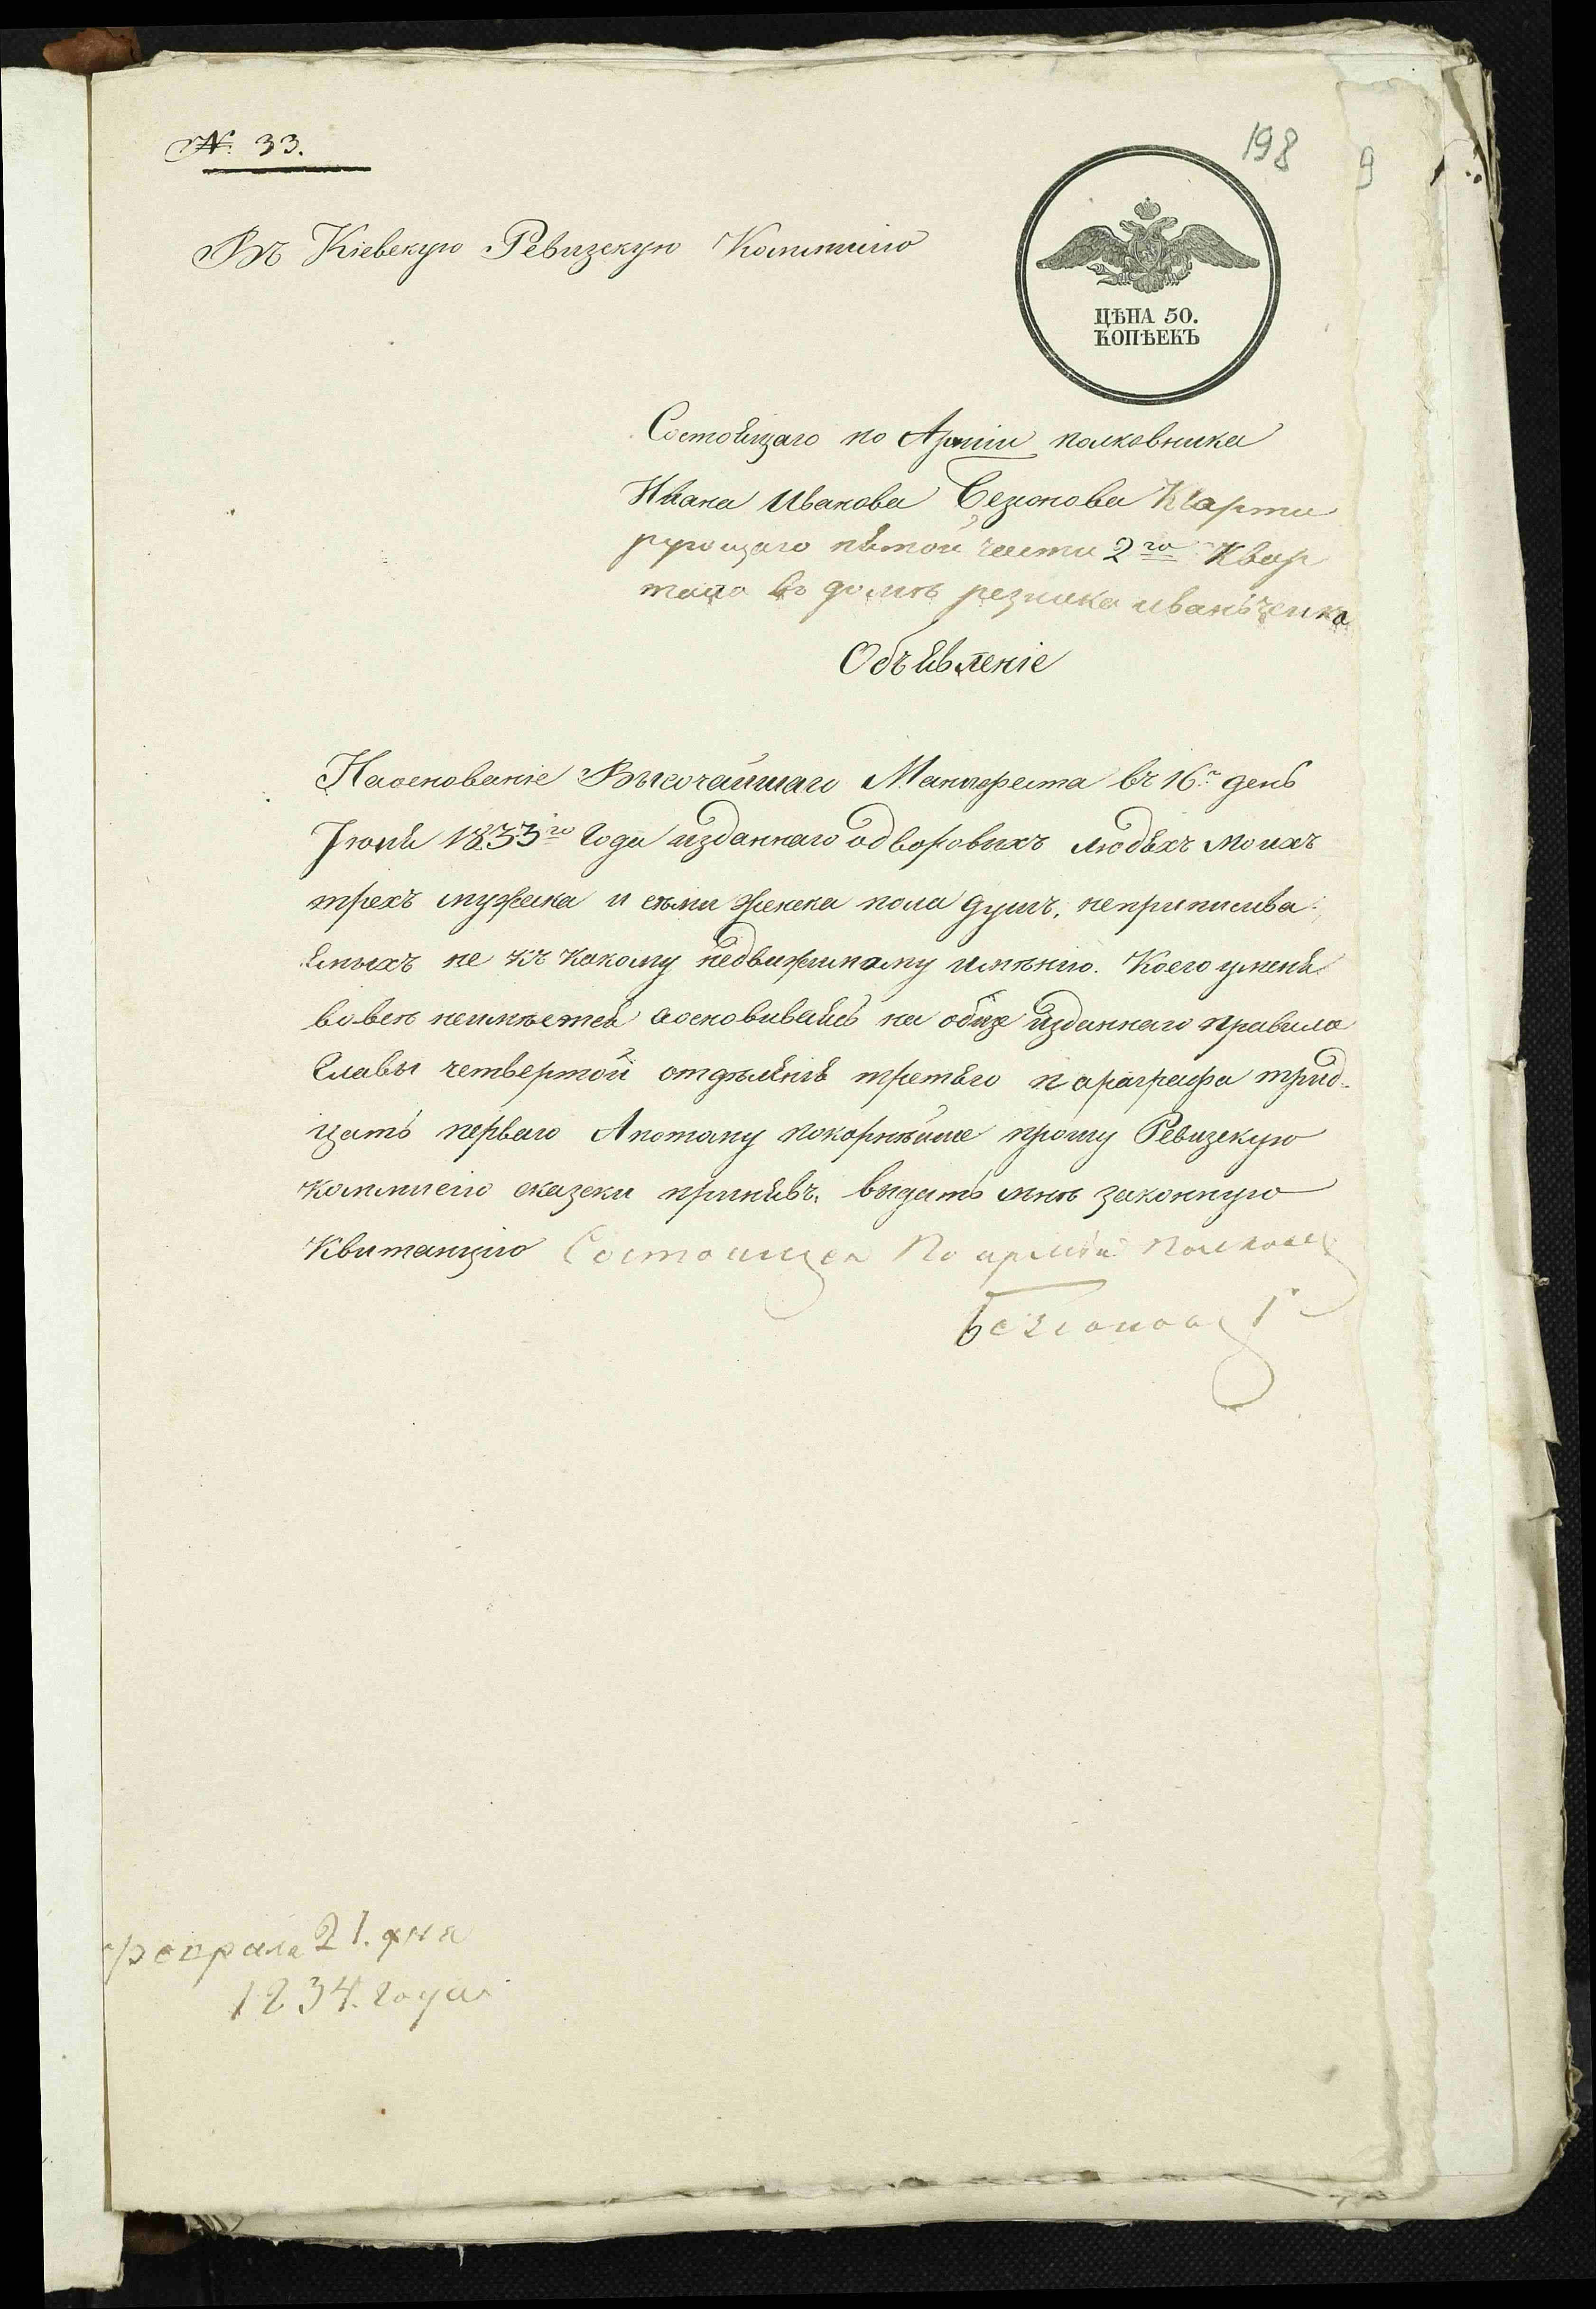 № 33.
198
9
Въ Кіевскую Ревизскую Коммисію
ЦѢНА 50.
КОПѢЕКЪ
Состоящаго по Арміи полковника
Ивана Иванова Безионова Кварти
рующаго пятой части 2го Квар
тала въ домѣ резника иванѣченка
Объявленіе
Наоснованіе Высочайшаго Манифеста въ 16й день
Іюня 1833го Года изданнаго одворовыхъ людяхъ моихъ
трехъ мужска и семи женска пола душъ, неприписива
емыхъ не къ какому недвижимому имѣнію. Коего уменя
вовсе неимѣется аосновиваясь на обще изданнаго правила
Главы четвертой отдѣленія третяго параграфа трид-
цать перваго Апотому покорнѣйше прошу Ревизскую
коммисію сказски принявъ, выдать мнѣ законную
Квитанцію Состоищей По арміи Полков
Безионовъ
февраля 21. дня
1834. года